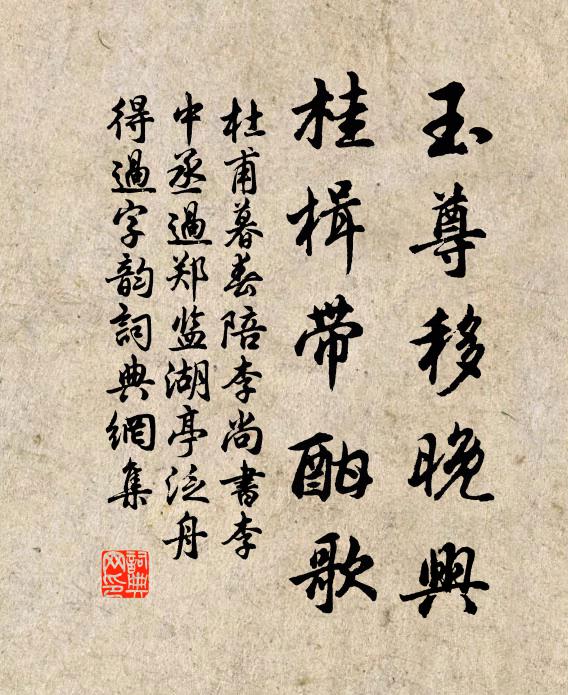 玉尊移晚興
桂楫带酣歌
杜甫暮春陪李尚书李
中丞過郑监湖亭泛舟
得過字韵詞典網集
詞典網印